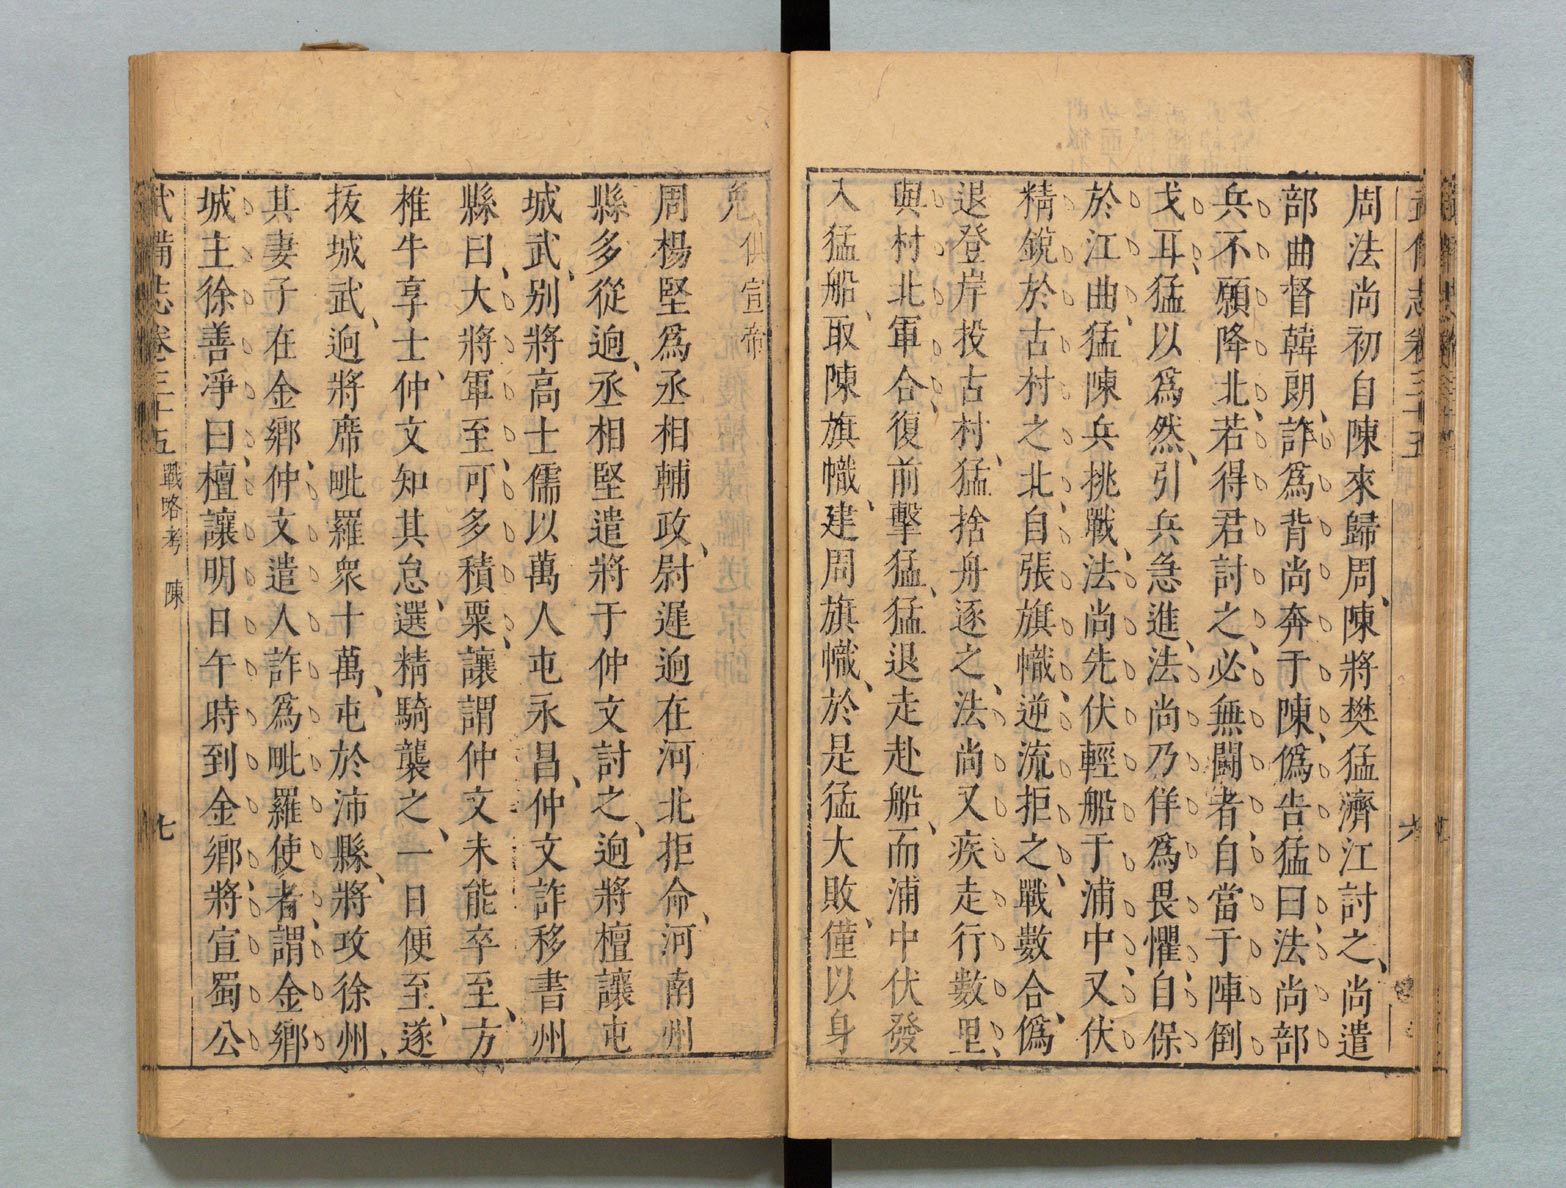 武備志卷三十五
六
周法尚初自陳來歸周、陳將樊猛濟江討之、尚遣
部曲督韓朗、詐爲背尚奔于陳、僞告猛曰、法尚部
兵、不願降北、若得君討之、必無鬬者、自當于陣倒
戈耳、猛以爲然、引兵急進、法尚乃佯爲畏懼、自保
於江曲、猛陳兵挑戰、法尚先伏輕船于浦中、又伏
精銳於古村之北、自張旗幟、逆流拒之、戰數合、僞
退登岸投古村、猛捨舟逐之、法尚又疾走、行數里、
與村北軍合、復前擊猛、猛退走赴船、而浦中伏發
入猛船、取陳旗幟、建周旗幟、於是猛大敗、僅以身
免 俱宣帝
周楊堅爲丞相輔政、尉遲迥在河北拒命、河南州
縣多從迥、丞相堅遣將于仲文討之、迥將檀讓屯
城武、別將高士儒以萬人屯永昌、仲文詐移書州
縣曰、大將軍至、可多積粟、讓謂仲文未能卒至、方
椎牛享士、仲文知其怠、選精騎襲之、一日便至、遂
拔城武、迥將席毗羅衆十萬、屯於沛縣、將攻徐州、
其妻子在金鄉、仲文遣人詐爲毗羅使者、謂金鄉
城主徐善凈曰、檀讓明日午時到金鄉、將宣蜀公
武備志卷三十五 戰略考 陳
七